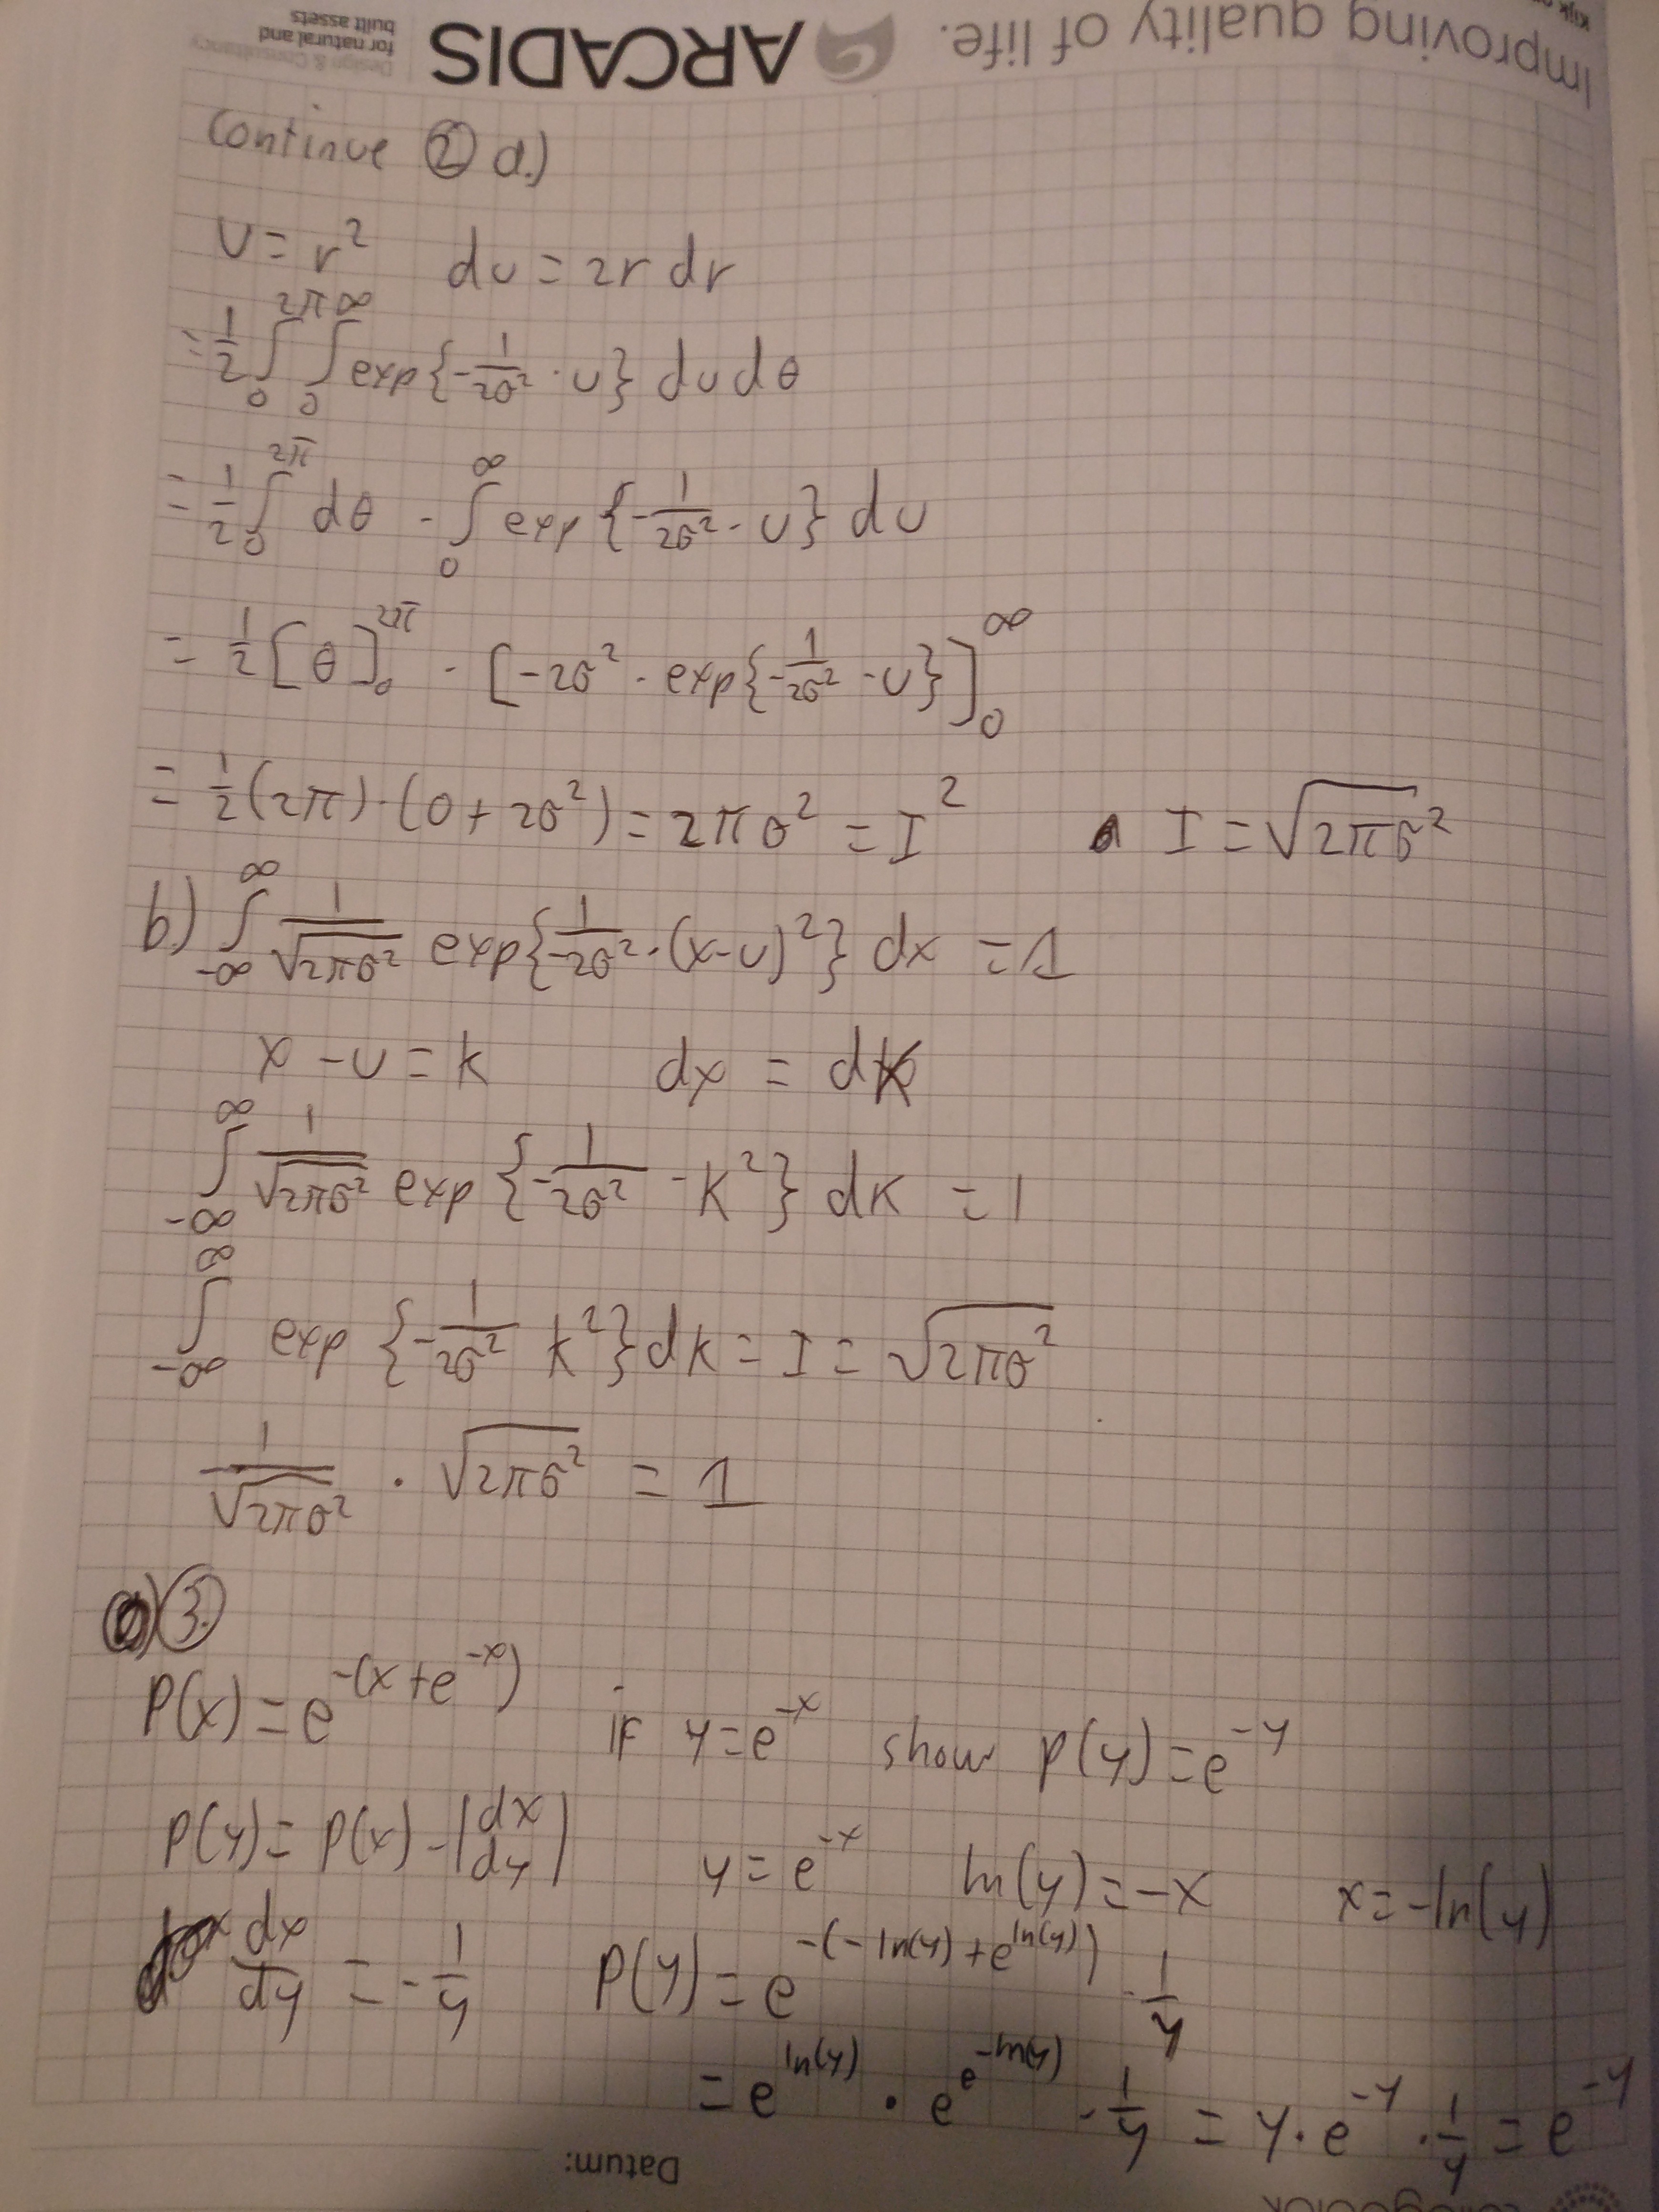 Kijk o
Improving quality of life.
ARCADIS
Design & Consultancy
for natural and
built assets
continue ② a.)
u = r² du = 2r dr
= 1/2 ∫₀^2π ∫₀^∞ exp{-1/2σ² · u} du dθ
= 1/2 ∫₀^2π dθ · ∫₀^∞ exp{-1/2σ² · u} du
= 1/2 [θ]₀^2π · [-2σ² · exp{-1/2σ² · u}]₀^∞
= 1/2 (2π) · (0 + 2σ²) = 2πσ² = I² I = √2πσ²
b.) ∫_-∞^∞ 1/√2πσ² exp{-1/2σ² · (x-u)²} dx = 1
x - u = k dx = dk
∫_-∞^∞ 1/√2πσ² exp{-1/2σ² · k²} dk = 1
∫_-∞^∞ exp{-1/2σ² k²} dk = I = √2πσ²
1/√2πσ² · √2πσ² = 1
③.
P(x) = e^-(x+e^-x) if y = e^-x show p(y) = e^-y
P(y) = P(x) · |dx/dy| y = e^-x ln(y) = -x x = -ln(y)
dx/dy = -1/y P(y) = e^-(-ln(y) + e^ln(y)) · 1/y
= e^ln(y) · e^e^-ln(y) · 1/y = y · e^-y · 1/y = e^-y
Datum: